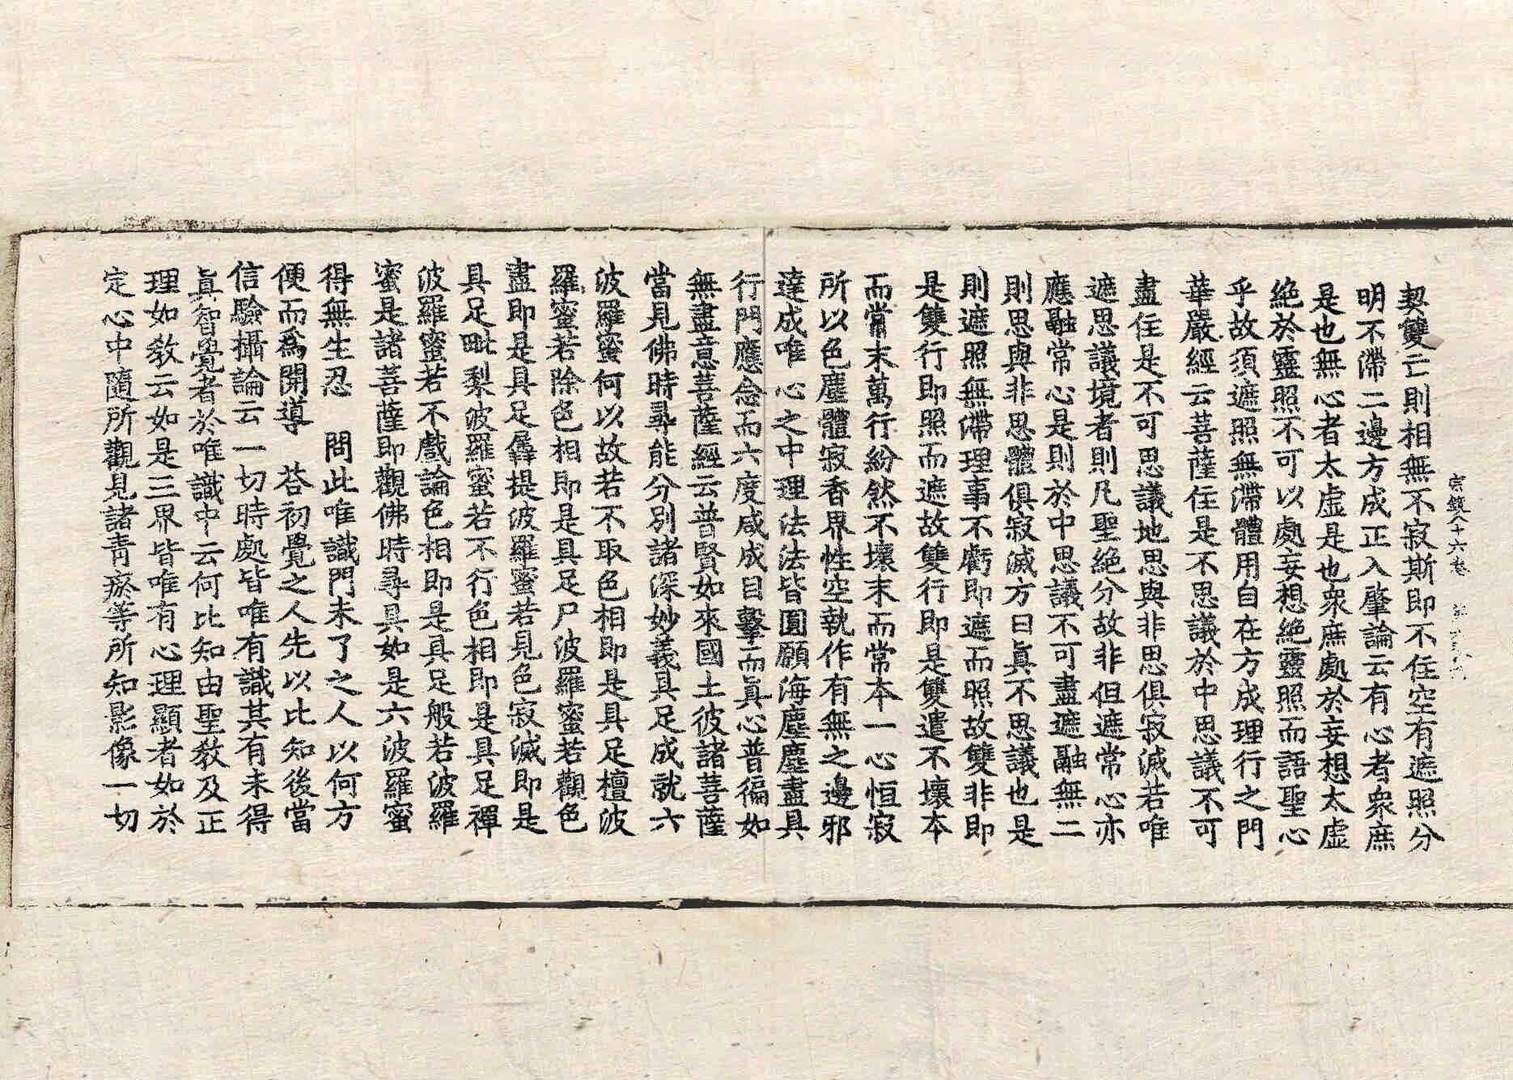 契雙亡則相無不寂斯即不住空有遮照分
明不滯二邊方成正入肇論云有心者衆庶
是也無心者太虛是也衆庶處於妄想太虛
絶於靈照不可以處妄想絶靈照而語聖心
乎故須遮照無滯體用自在方成理行之門
華嚴經云菩薩住是不思議於中思議不可
盡住是不可思議地思與非思俱寂滅若唯
遮思議境者則凡聖絶分故非但遮常心亦
應融常心是則於中思議不可盡遮融無二
則思與非思體俱寂滅方曰眞不思議也是
則遮照無滯理事不虧即遮而照故雙非即
是雙行即照而遮故雙行即是雙遣不壞本
而常末萬行紛然不壞末而常本一心恒寂
所以色塵體寂香界性空執作有無之邊邪
達成唯心之中理法法皆圓願海塵塵盡具
行門應念而六度咸成目擊而眞心普徧如
無盡意菩薩經云普賢如來國土彼諸菩薩
當見佛時尋能分別諸深妙義具足成就六
波羅蜜何以故若不取色相即是具足檀波
羅蜜若除色相即是具足尸波羅蜜若觀色
盡即是具足羼提波羅蜜若見色寂滅即是
具足毗梨波羅蜜若不行色相即是具足禪
波羅蜜若不戲論色相即是具足般若波羅
蜜是諸菩薩即觀佛時尋具如是六波羅蜜
得無生忍 問此唯識門未了之人以何方
便而爲開導 荅初覺之人先以比知後當
信驗攝論云一切時處皆唯有識其有未得
眞智覺者於唯識中云何比知由聖教及正
理如教云如是三界皆唯有心理顯者如於
定心中隨所觀見諸青瘀等所知影像一切
宗鏡八十六卷